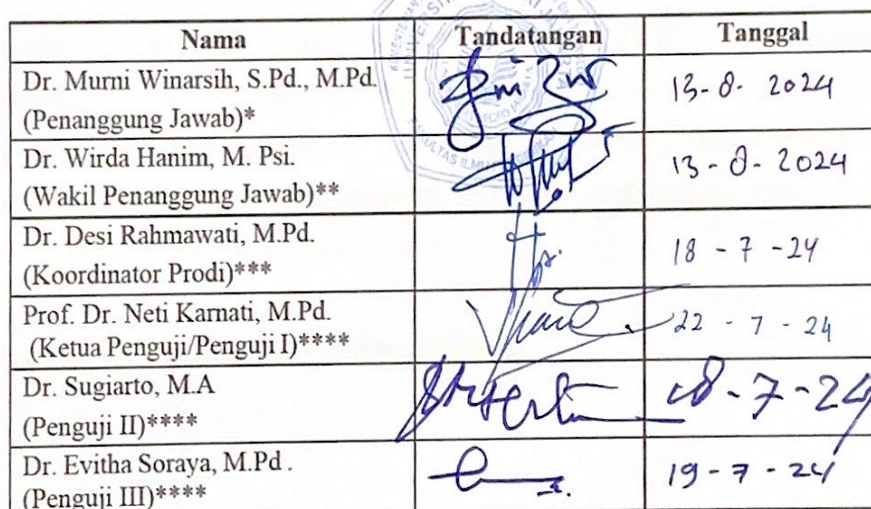 Nama Tandatangan Tanggal
Dr. Murni Winarsih, S.Pd., M.Pd.
(Penanggung Jawab)*
13-8-2024
Dr. Wirda Hanim, M. Psi.
(Wakil Penanggung Jawab)**
13-8-2024
Dr. Desi Rahmawati, M.Pd.
(Koordinator Prodi)***
18 - 7 - 24
Prof. Dr. Neti Karnati, M.Pd.
(Ketua Penguji/Penguji I)****
22 - 7 - 24
Dr. Sugiarto, M.A
(Penguji II)****
18-7-24
Dr. Evitha Soraya, M.Pd .
(Penguji III)****
19-7-24